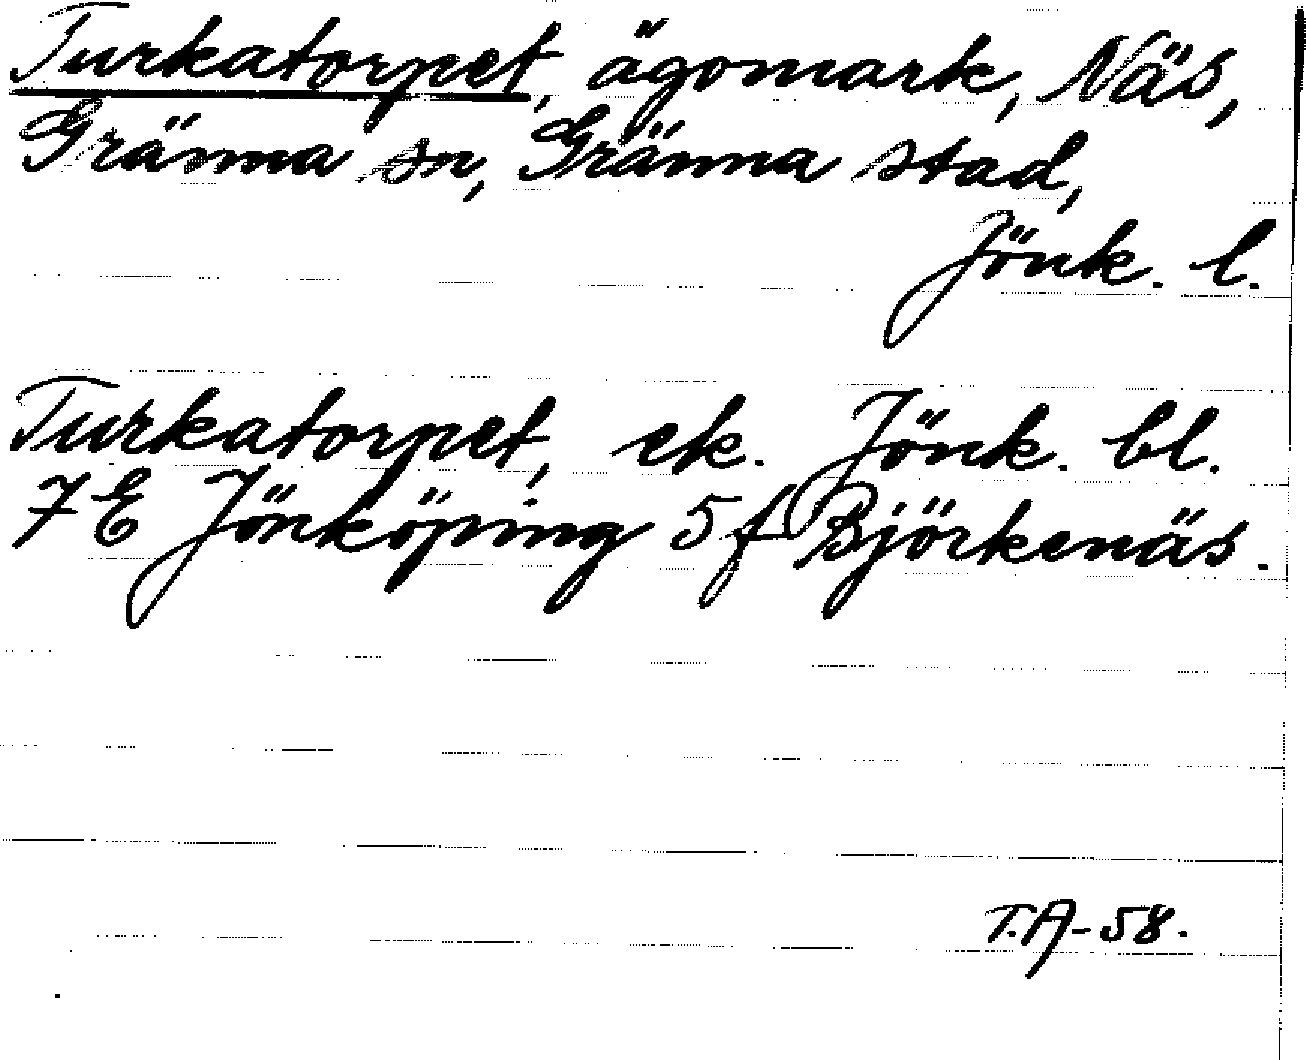 Turkatorpet, ägomark, Näs,
Gränna sn, Gränna stad,
Jönk. l.
Turkatorpet, ek. Jönk. bl.
7E Jönköping 5f Björkenäs.
T.A-58.